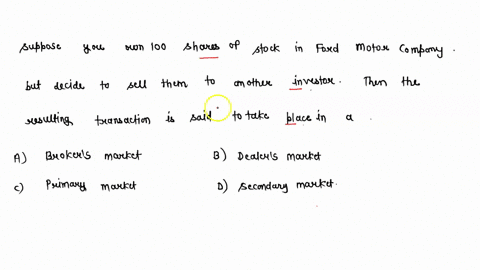 suppose you own 100 shares of stock in Ford Motor Company.
but decide to sell them to another investor. Then the
resulting transaction is said to take place in a.
A) Broker's market B) Dealer's market
C) Primary market D) Secondary market.